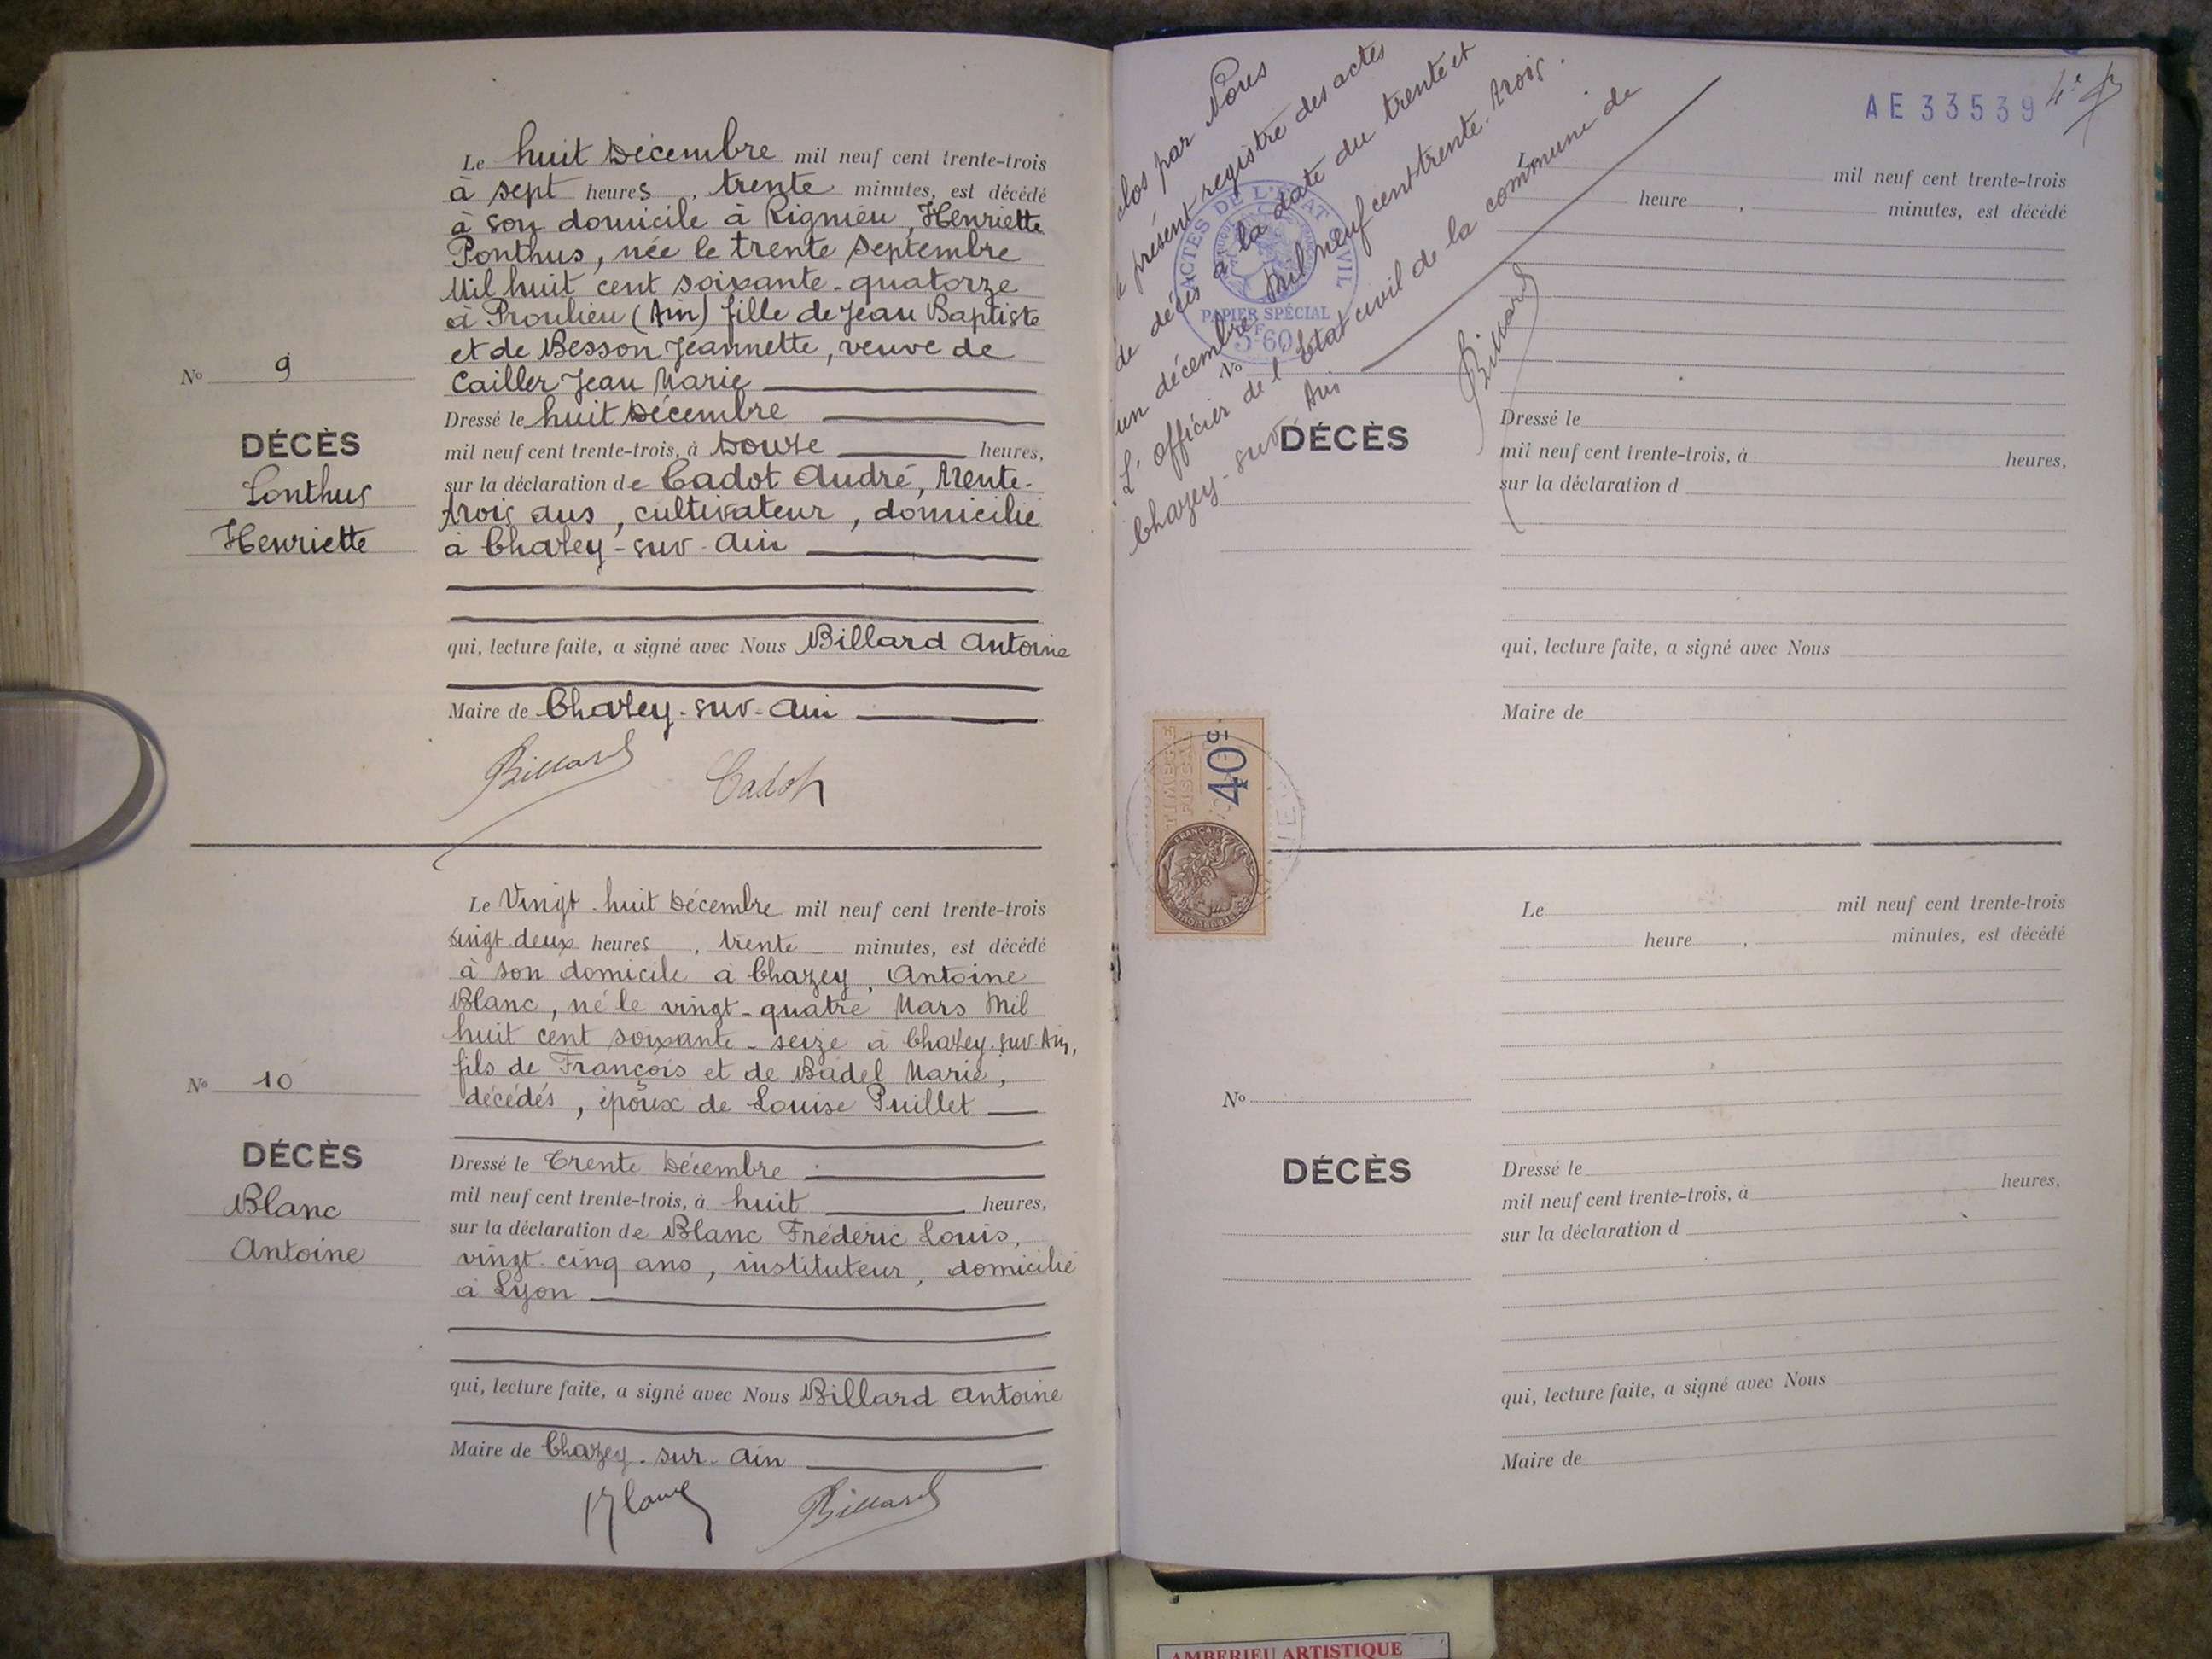 Le huit Décembre mil neuf cent trente-trois
à sept heures, trente minutes, est décédé
à son domicile à Rignieu, Henriette
Ponthus, née le trente Septembre
Mil huit cent soixante-quatorze
à Proulieu (Ain) fille de Jean Baptiste
et de Besson Jeannette, veuve de
Cailler Jean Marie
No 9
DÉCÈS
Ponthus
Henriette
Dressé le huit Décembre
mil neuf cent trente-trois, à Douze heures,
sur la déclaration de Cadot André, trente-
trois ans, cultivateur, domicilié
à Chazey-sur-Ain
qui, lecture faite, a signé avec Nous Billard Antoine
Maire de Chazey-sur-Ain
Billard Cadot
Le Vingt-huit Décembre mil neuf cent trente-trois
vingt-deux heures, trente minutes, est décédé
à son domicile à Chazey, Antoine
Blanc, né le vingt-quatre Mars Mil
huit cent soixante-seize à Chazey-sur-Ain,
fils de François et de Badel Marie,
décédés, époux de Louise Puillet
No 10
DÉCÈS
Blanc
Antoine
Dressé le Trente Décembre
mil neuf cent trente-trois, à huit heures,
sur la déclaration de Blanc Frédéric Louis,
vingt-cinq ans, instituteur, domicilié
à Lyon
qui, lecture faite, a signé avec Nous Billard Antoine
Maire de Chazey-sur-Ain
Blanc Billard
clos par Nous
le présent registre des actes
de décès à la date du trente et
un décembre Mil neuf cent trente-trois.
L'officier de l'Etat civil de la commune de
Chazey-sur-Ain
Billard
ACTES DE L'ETAT CIVIL
PAPIER SPÉCIAL
60
AE 33539
Le mil neuf cent trente-trois
heure , minutes, est décédé
No
DÉCÈS
Dressé le
mil neuf cent trente-trois, à heures,
sur la déclaration d
qui, lecture faite, a signé avec Nous
Maire de
TIMBRE
FISCAL
40c
Le mil neuf cent trente-trois
heure , minutes, est décédé
No
DÉCÈS
Dressé le
mil neuf cent trente-trois, à heures,
sur la déclaration d
qui, lecture faite, a signé avec Nous
Maire de
AMBERIEU ARTISTIQUE